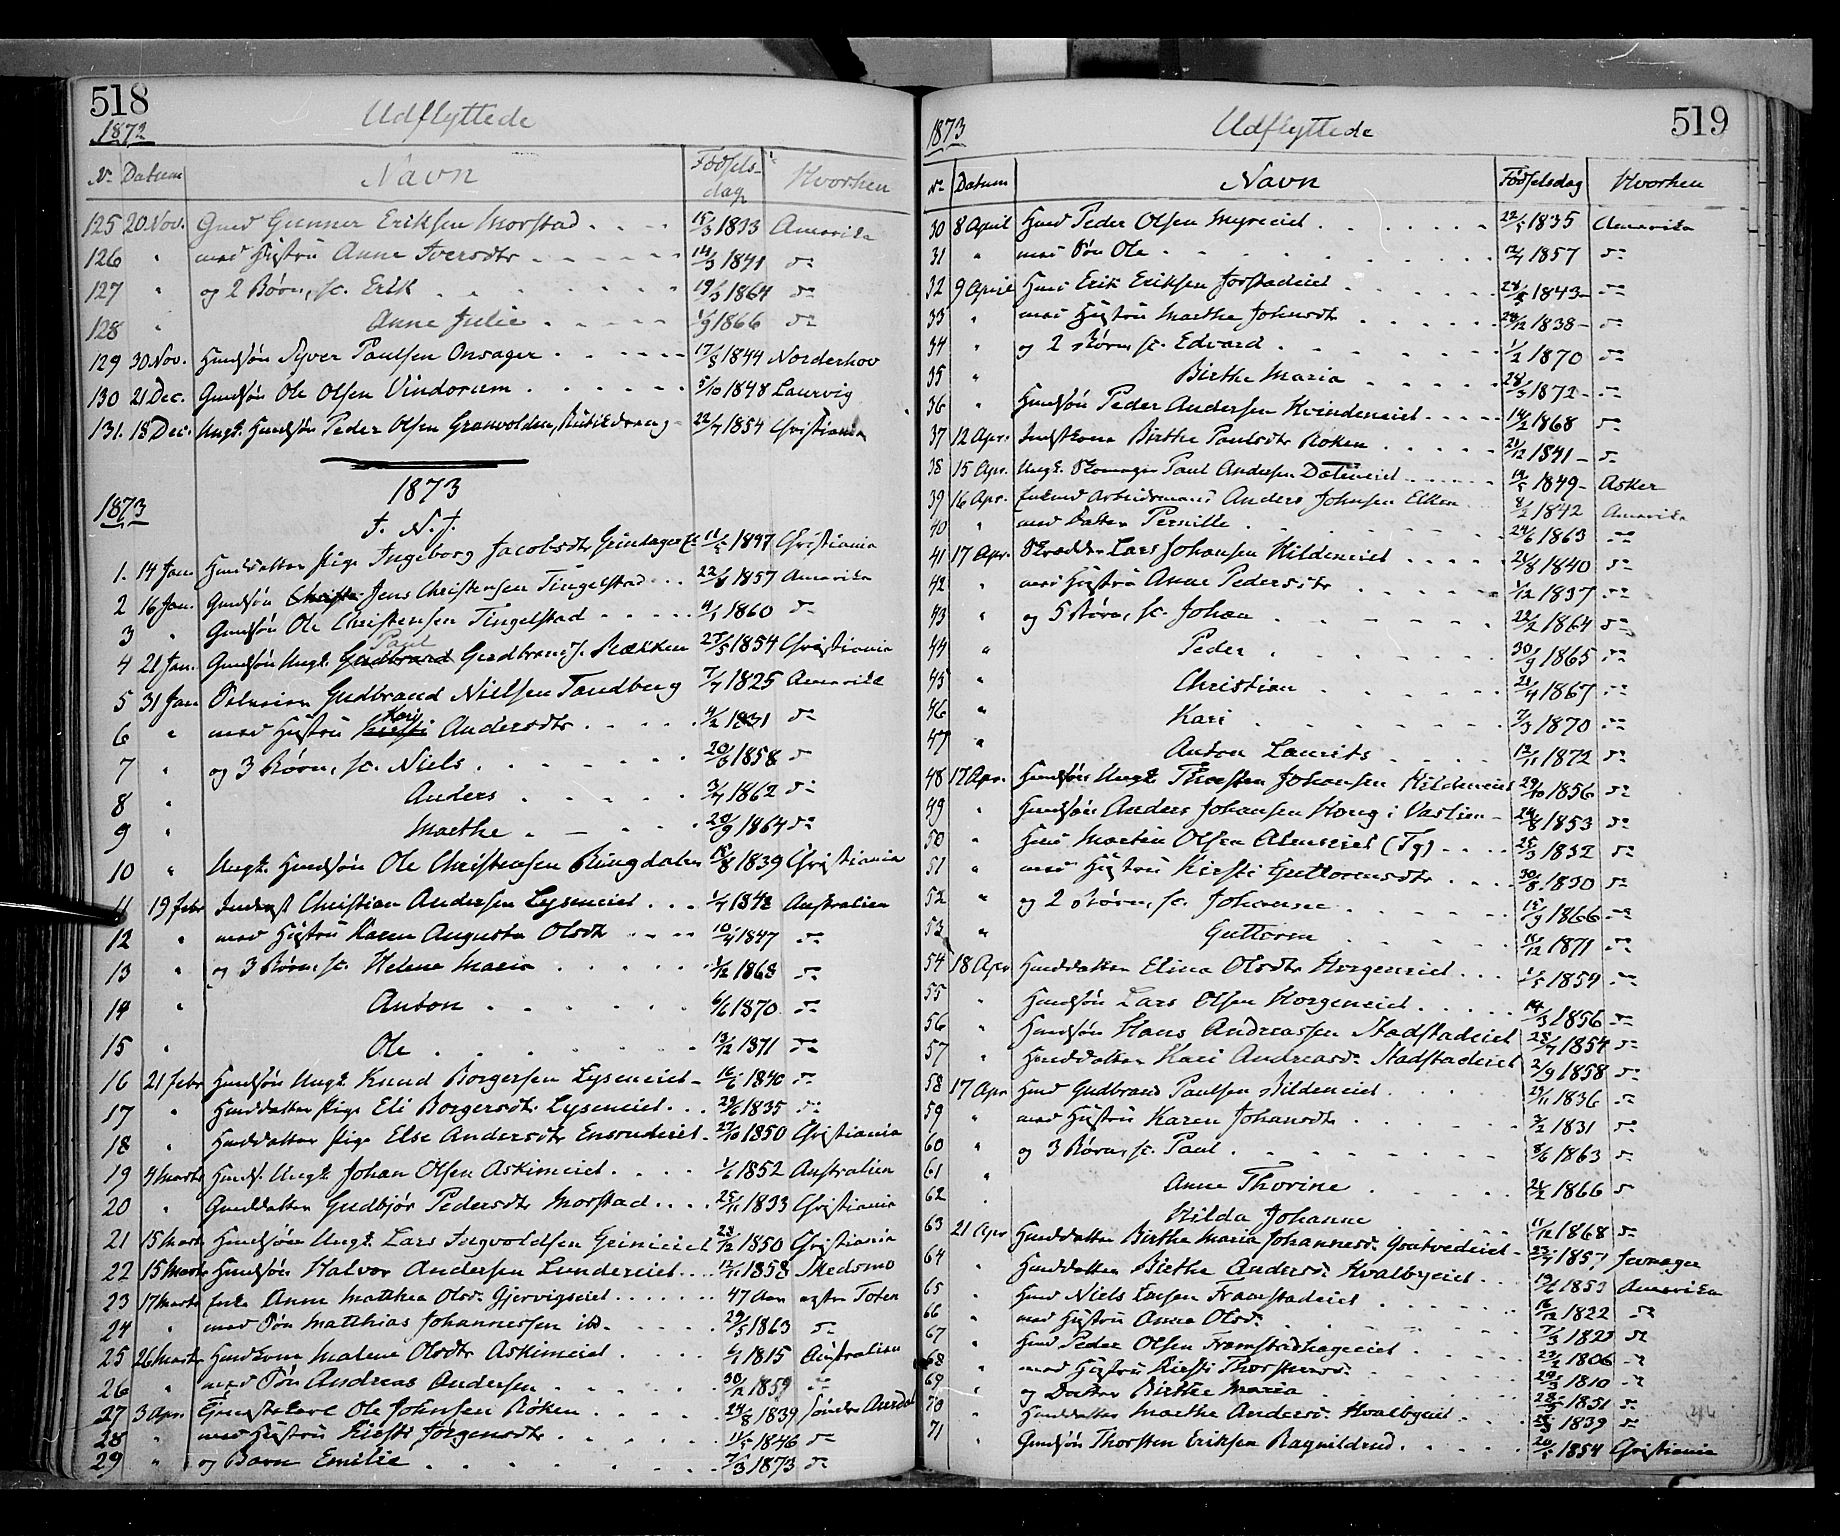 518
1872
Udflyttede
Nº Datum Navn Fødselsdag Hvorhen
125 20 Nov. Gmd Gunner Eriksen Morstad 15/3 1833 Amerika
126 " med Hustru Anne Iversdtr 14/3 1841 do
127 " og 2 Børn, sc. Erik 19/3 1864 do
128 " Anne Julie 1/9 1866 do
129 30 Nov. Husmdsøn Syver Paulsen Onsager 17/8 1844 Norderhov
130 21 Dec. Gmdsøn Ole Olsen Vindorum 5/10 1848 Laurvig
131. 18 Dec. Ungk. Husmdsøn Peder Olsen Granvolden, 22/7 1854 Christiania
1873
1873
J. N. J.
1. 14 Jan. Husmddatter Pige Ingeborg Jacobsdtr 11/5 1847 Christiania
2 16 Jan. Gmdsøn Jens Christensen Tingelstad 22/8 1857 Amerika
3 " Gmdsøn Ole Christensen Tingelstad 4/1 1860 do
4 21 Jan. Gmdsøn Ungk. Paul Gudbrands. Rækken 25/5 1854 Christiania
5 31 Jan. Gudbrand Nielsen Tandberg 7/7 1825 Amerika
6 " med Hustru Kari Andersdtr 4/2 1831 do
7 " og 3 Børn, sc. Niels 20/6 1858 do
8 " Anders 3/7 1862 do
9 " Marthe 20/9 1864 do
10 " Ungk. Husmdsøn Ole Christensen Ringdalen 18/8 1839 Christiania
11 19 Febr Inderst Christian Andersen Lyseneiet 1/7 1842 Australien
12 " med Hustru Karen Augusta Olsdtr 10/4 1847 do
13 " og 3 Børn, sc. Helene Marie 1/12 1868 do
14 " Anton 6/6 1870 do
15 " Ole 13/12 1871 do
16 21 Febr Husmdsøn Ungk. Knud Borgersen Lyseneiet 16/6 1840 do
17 " Husmddatter Pige Eli Borgersdtr Lyseneiet 29/6 1835 do
18 " Husmddatter Pige Else Andersdtr Ensrudeiet 27/10 1850 Christiania
19 4 Marts Husmds. Ungk. Johan Olsen Askimeiet 1/6 1852 Australien
20 " Gmddatter Gudbjør Pedersdtr Morstad 25/11 1833 Christiania
21 15 Marts Husmdsøn Ungk. Lars Ingvoldsen Grinieiet 23/12 1850 Christiania
22 15 Marts Husmdsøn Halvor Andersen Lundereiet 12/11 1858 Skedsmo
23 17 Marts Enke Anne Matthea Olsd. Gjervigseiet 47 Aar østre Toten
24 " med Søn Matthias Johannessen ibd. 29/5 1863 do
25 26 Marts Husmdkone Malene Olsdtr Askimeiet 6/1 1815 Australien
26 " med Søn Andreas Andersen 30/12 1859 do
27 3 Apr. Ole Johnsen Røken 24/8 1839 Søndre Aurdal
28 " med Hustru Kirsti Jørgensdtr 11/5 1846 do
29 " og Barn Emilie 7/3 1873 do
1873
Udflyttede
519
Nº Datum Navn Fødselsdag Hvorhen
30 8 April Husmd Peder Olsen Myreeiet 22/5 1835 Amerika
31 " med Søn Ole 12/4 1857 do
32 9 April Husmd Erik Eriksen Jorstadeiet 28/5 1843 do
33 " med Hustru Marthe Johnsdtr 28/12 1838 do
34 " og 2 Børn, sc. Edvard 1/2 1870 do
35 " Birthe Maria 28/3 1872 do
36 " Husmdsøn Peder Andersen Kvindeneiet 14/2 1868 do
37 12 Apr. Indstkone Birthe Paulsdtr Røken 21/12 1841 do
38 15 Apr. Ungk. Skomager Paul Andersen 19/5 1849 Asker
39 16 Apr. Enkemd Arbeidsmand Anders Johnsen Elken 8/2 1842 Amerika
40 " med Datter Pernille 24/6 1863 do
41 17 Apr. Skrædder Lars Johansen Hildeneiet 21/8 1840 do
42 " med Hustru Anne Pedersdtr 1/12 1837 do
43 " og 5 Børn, sc. Johan 22/2 1864 do
44 " Peder 30/9 1865 do
45 " Christian 21/4 1867 do
46 " Kari 7/3 1870 do
47 " Anton Laurits 12/11 1872 do
48 17 Apr. Husmdsøn Ungk. Thorsten Johansen Hildeneiet 29/10 1856 do
49 " Husmdsøn Anders Johansen Haug i Vaslien 24/8 1853 do
50 " Husmd Martin Olsen Almseiet (Tg) 25/3 1832 do
51 " med Hustru Kirsti Guttormsdtr 30/8 1830 do
52 " og 2 Børn, sc. Johanne 15/9 1866 do
53 " Guttorm 18/12 1871 do
54 18 Apr Husmddatter Elina Olsdtr Horgeneiet 1/5 1854 do
55 " Husmdsøn Lars Olsen Horgeneiet 14/3 1856 do
56 " Husmdsøn Hans Andreassen Stadstadeiet 25/7 1854 do
57 " Husmddatter Kari Andreasd. Stadstadeiet 2/9 1858 do
58 17 Apr Husmd Gudbrand Paulsen Hildeneiet 29/11 1836 do
59 " med Hustru Karen Johansdtr 3/2 1831 do
60 " og 3 Børn, sc. Paul 8/6 1863 do
61 " Anne Thorine 21/2 1866 do
62 " Hilda Johanne 11/12 1868 do
63 21 Apr Husmddatter Birthe Maria Johannesd. 22/4 1857 Jevnager
64 " Husmddatter Birthe Andersd. Hvalbyeiet 19/6 1853 Amerika
65 " Husmd Niels Framstadeiet 16/12 1822 do
66 " med Hustru Anna Olsd. 7/3 1823 do
67 " Husmd Peder Olsen Framstadhageeiet 23/2 1806 do
68 " med Hustru Kirsti Thorstensd. 29/3 1810 do
69 " og Datter Birthe Maria 28/5 1851 do
70 " Husmddatter Marthe Andersd. Hvalbyeiet 25/3 1839 do
71 " Gmdsøn Thorsten Eriksen Ragnildrud 20/5 1854 Christiania